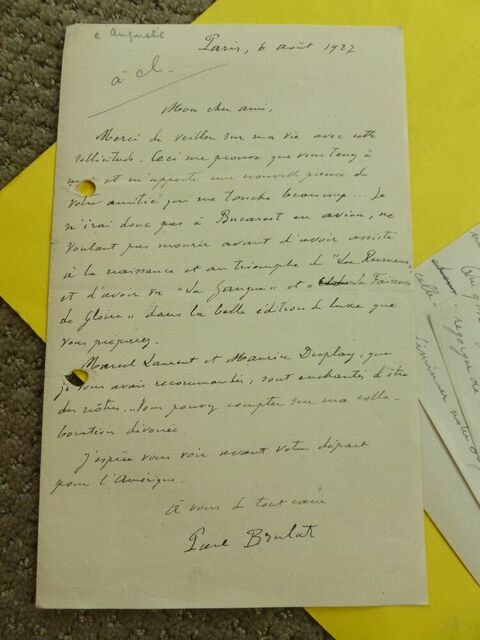 a Anquetil
à cl.
Paris, 6 août 1927
Mon cher ami,
Merci de veiller sur ma vie avec cette
sollicitude. Ceci me prouve que vous tenez à
moi et m'apporte une nouvelle preuve de
votre amitié qui me touche beaucoup... Je
n'irai donc pas à Bucarest en avion, ne
voulant pas mourir avant d'avoir assisté
à la naissance et au triomphe de "La Rumeur"
et d'avoir vu "La Gangue" et "La Faiseuse
de Gloire" dans la belle édition de luxe que
vous préparez.
Marcel Laurent et Maurice Duplay, que
je vous avais recommandés, sont enchantés d'être
des nôtres... Vous pouvez compter sur ma colla-
boration dévouée.
J'espère vous voir avant votre départ
pour l'Amérique.
À vous de tout cœur
Paul Brulat